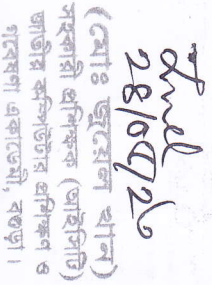 (মোঃ জুয়েল খান)
সহকারী প্রশিক্ষক (আইসিটি)
জাতীয় কম্পিউটার প্রশিক্ষণ ও
গবেষণা একাডেমী, বগুড়া।